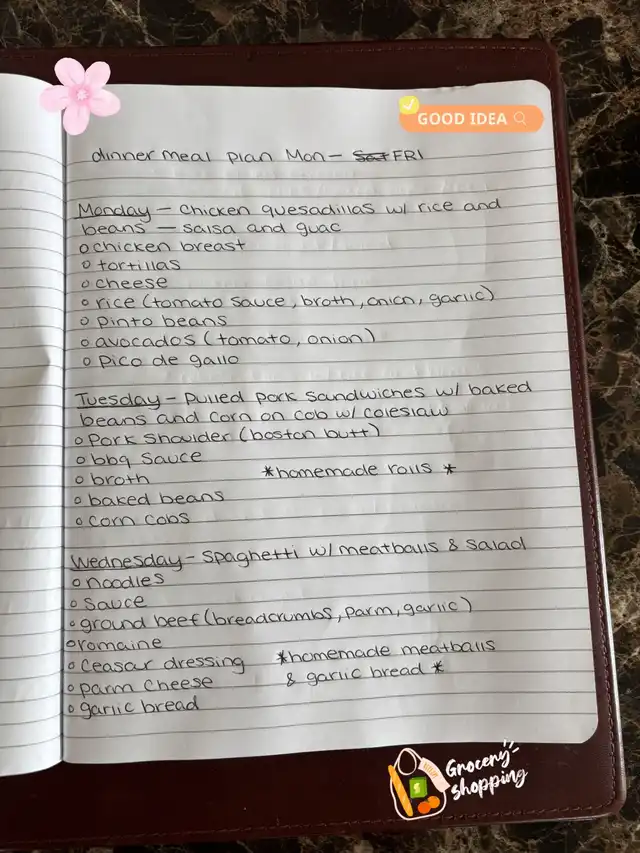 GOOD IDEA
dinner meal plan Mon - Sat FRI
Monday - Chicken quesadillas w/ rice and
beans - salsa and guac
o chicken breast
o tortillas
o cheese
o rice (tomato sauce, broth, onion, garlic)
o pinto beans
o avocados (tomato, onion)
o pico de gallo
Tuesday - Pulled pork sandwiches w/ baked
beans and corn on cob w/ coleslaw
o Pork Shoulder (boston butt)
o bbq sauce
o broth *homemade rolls *
o baked beans
o corn cobs
Wednesday - Spaghetti w/ meatballs & salad
o noodles
o sauce
o ground beef (breadcrumbs, parm, garlic)
o romaine
o ceasar dressing *homemade meatballs
o parm cheese & garlic bread *
o garlic bread
Grocery
shopping